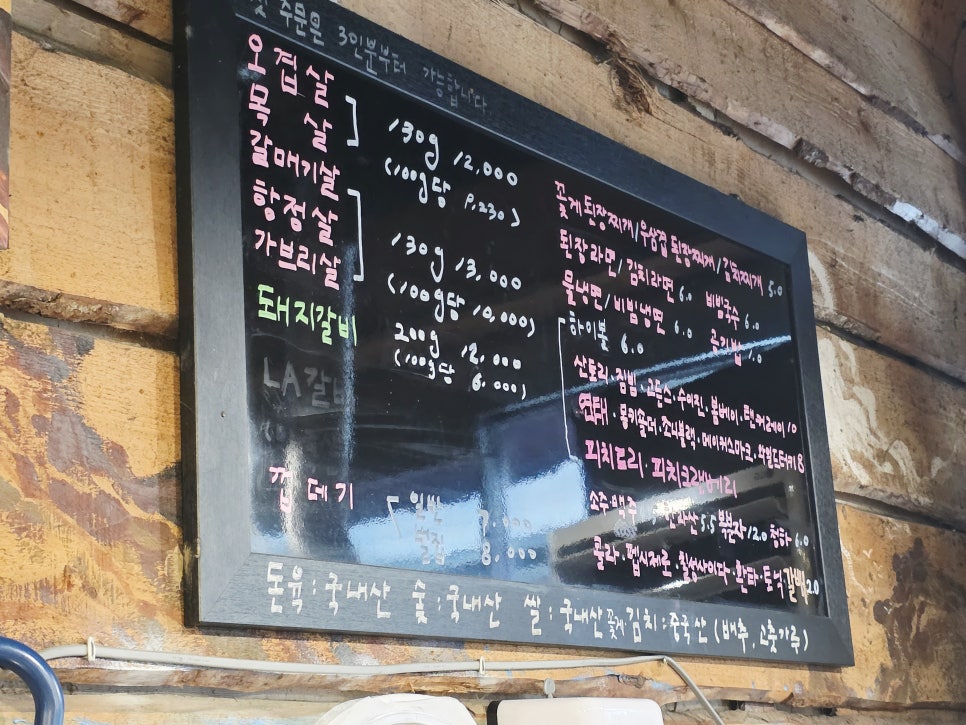 첫 주문은 3인분부터 가능합니다
오겹살
목 살
130g 12,000
(100g당 9,230)
갈매기살
항정살
가브리살
130g 13,000
(100g당 10,000)
돼지갈비
200g 12,000
(100g당 6,000)
LA갈비
껍데기
일반 7,000
벌집 8,000
꽃게된장찌개/우삼겹 된장찌개/김치찌개 5.0
된장라면/김치라면 6.0 비빔국수 6.0
물냉면/비빔냉면 6.0 공기밥 1.0
하이볼 6.0
산토리·짐빔·고든스·수이진·봄베이·탱커레이 10
연태·몽키숄더·조니블랙·메이커스마크·와일드터키8
피치트리·피치크랜베리
소주·맥주 한라산5.5 복분자12.0 청하6.0
콜라·펩시제로·칠성사이다·환타·토닉 갈배2.0
돈육:국내산 숯:국내산 쌀:국내산 꽃게 김치:중국산(배추,고춧가루)